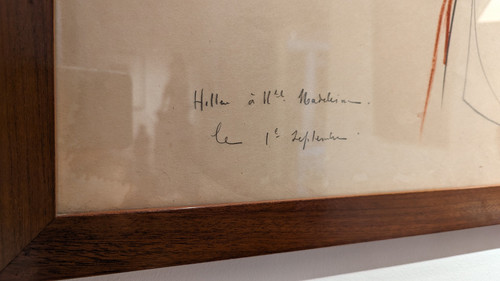 Hiller à Mlle Madeleine.
le 1er Septembre